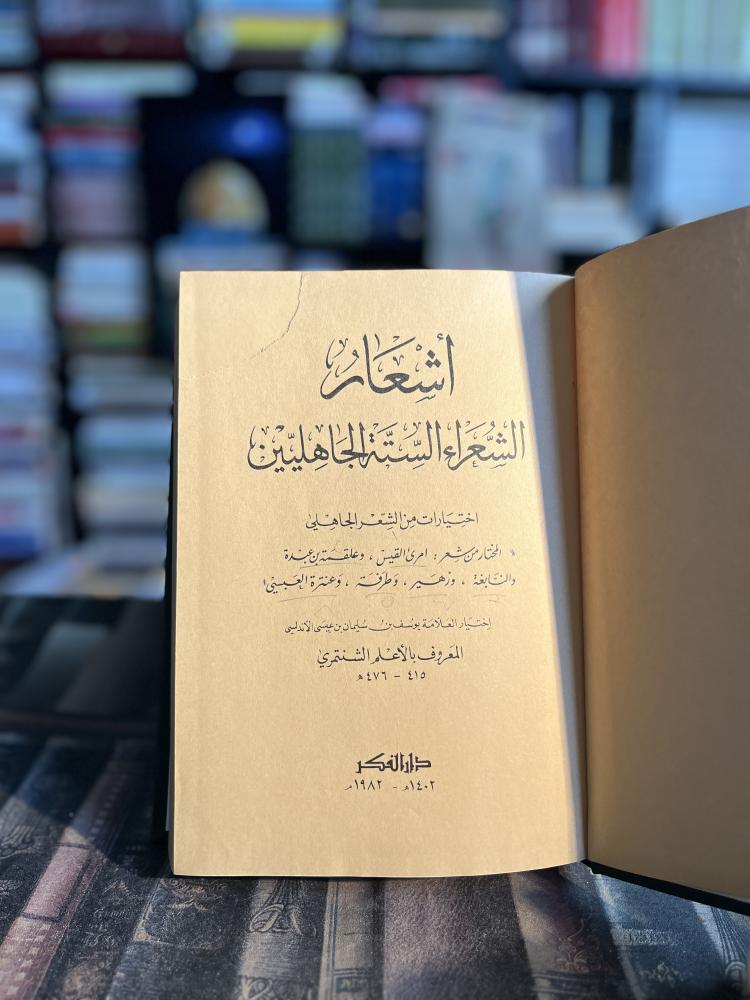 أشْعَارُ
الشُّعَراء السِّتَّة الجَاهِليّين
اختيارات مِنَ الشِّعْر الجَاهِلي
« المختار من شعر : امرئ القيس ، وعلقمة بن عبدة
والنَّابغة ، وزهير ، وطَرفة ، وَعنترة العَبسيّ »
اختيار العَلامَة يوسف بن سُليمان بن عيسَى الأندلسي
المعَروف بالأعلم الشنتمريّ
٤١٥ - ٤٧٦ هـ
دار الفكر
١٤٠٢هـ - ١٩٨٢مـ